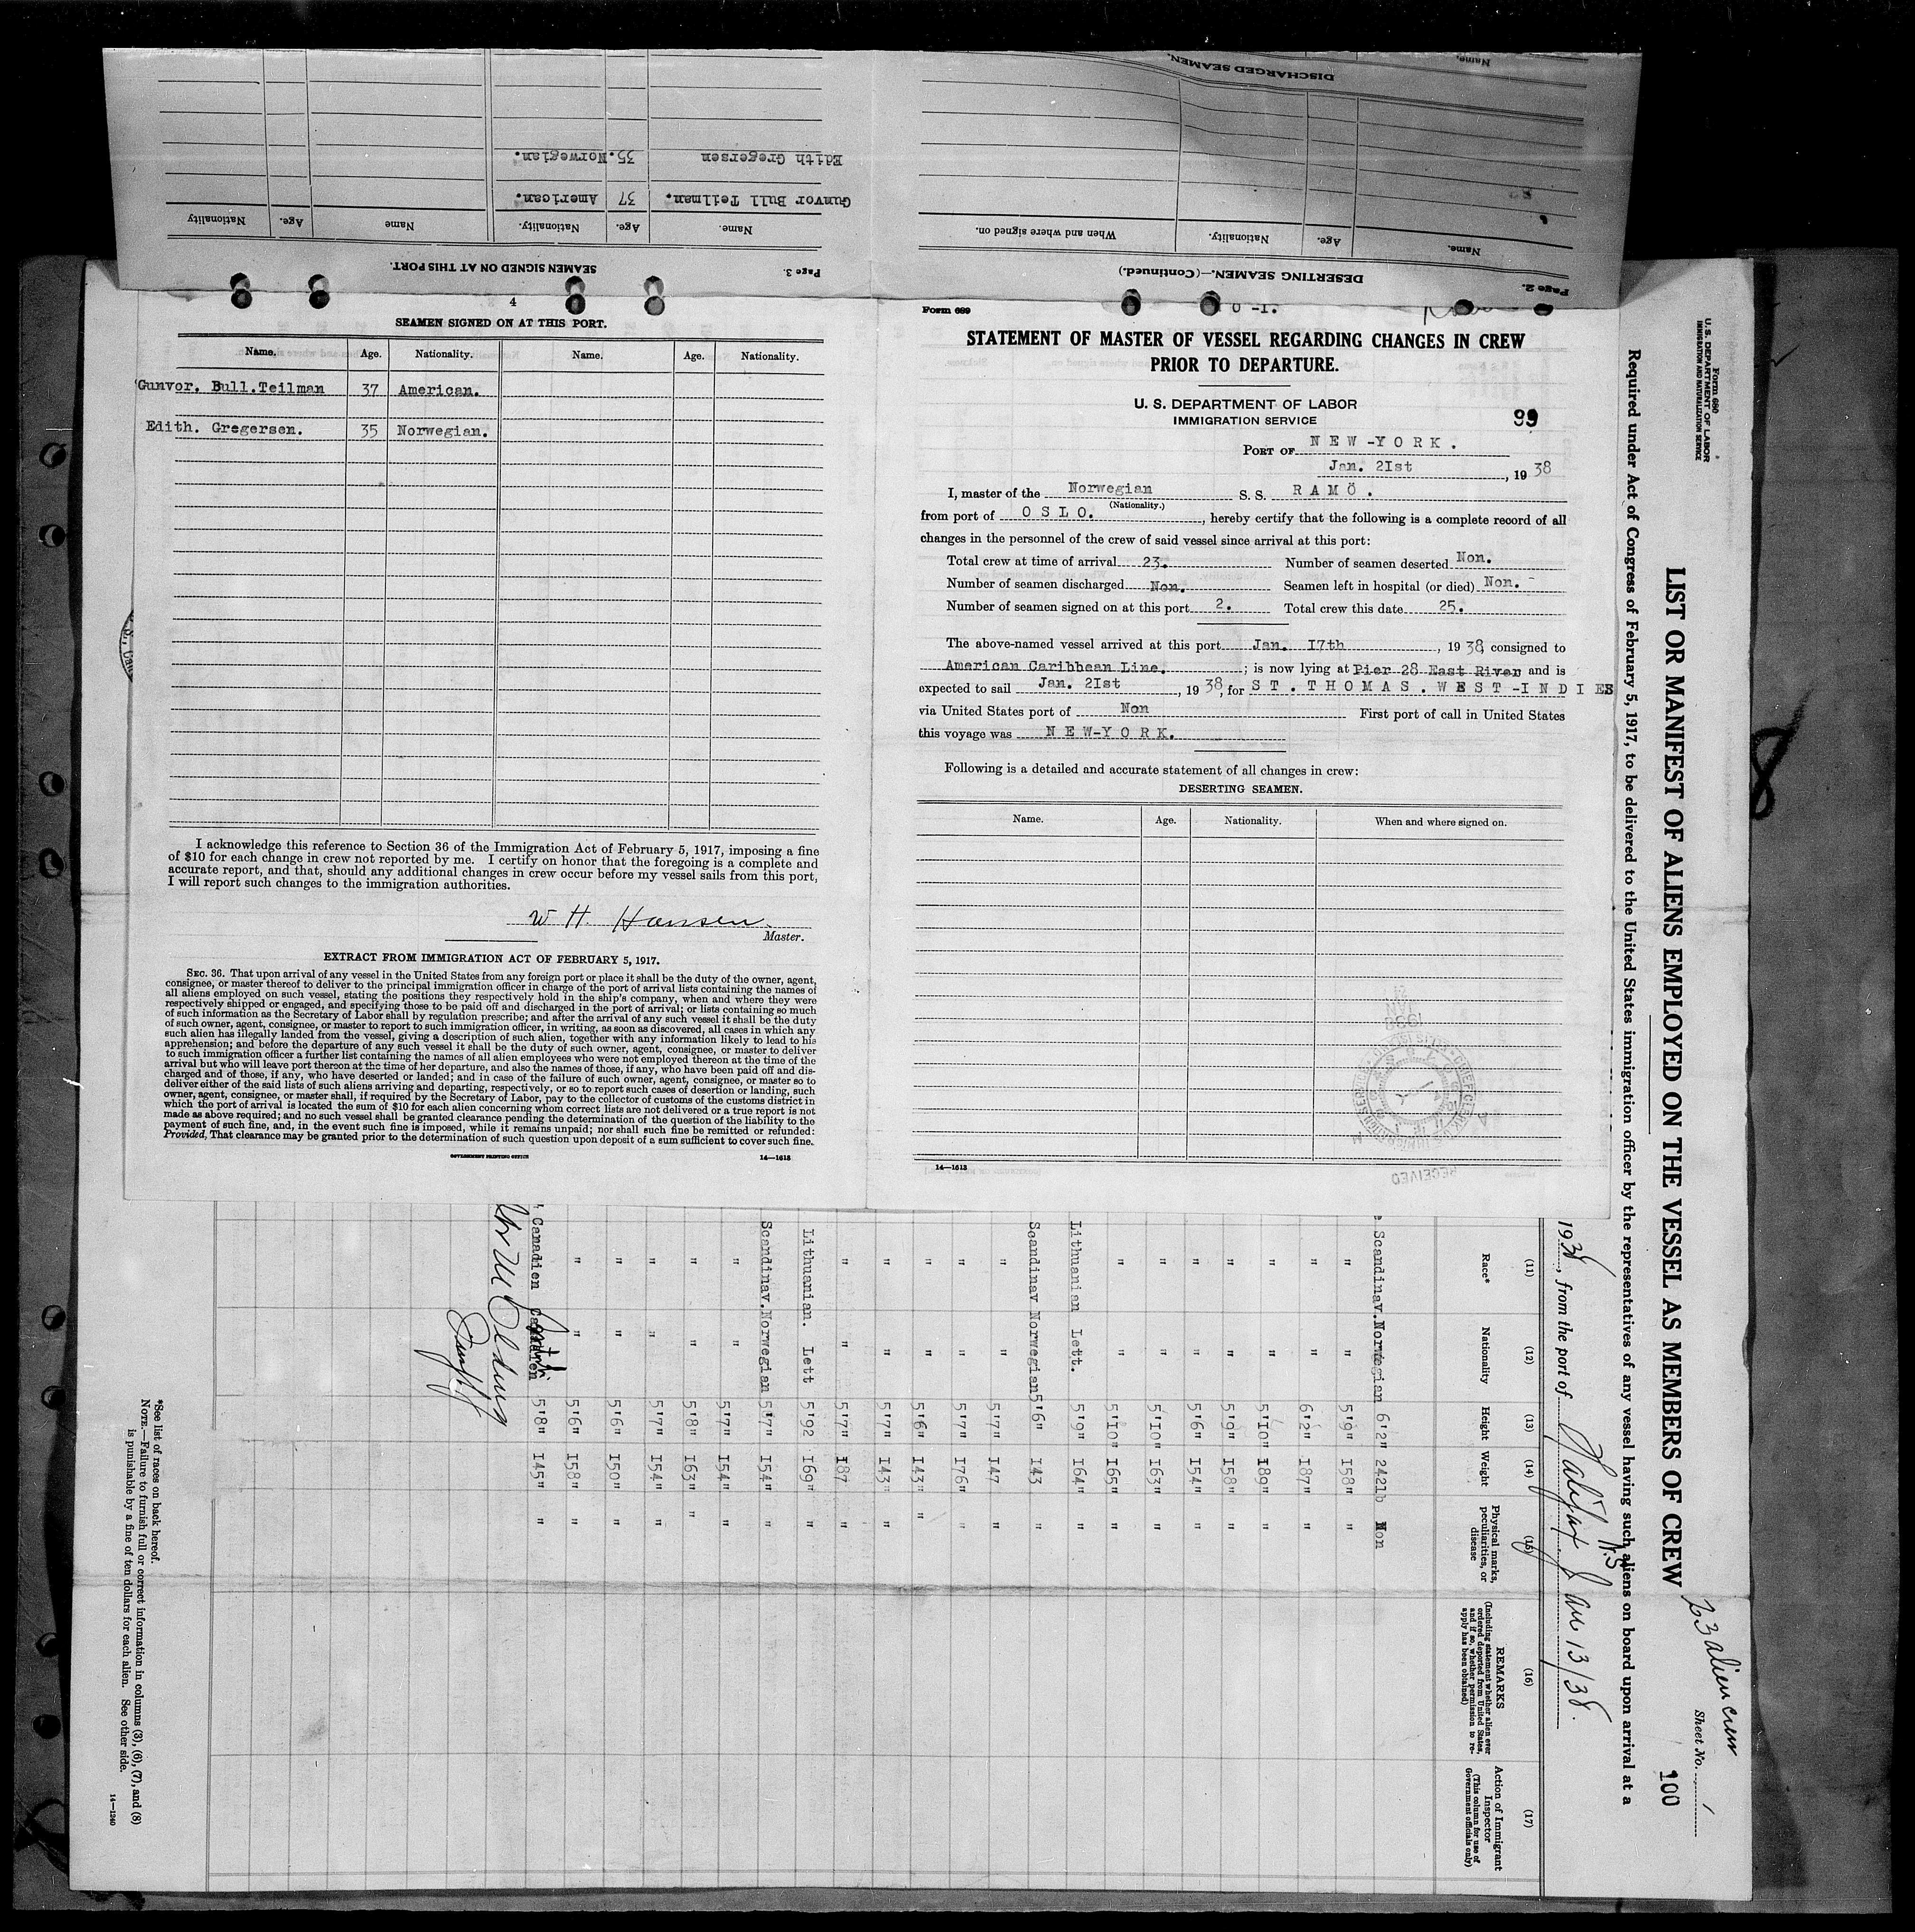 DISCHARGED SEAMEN.
Name.
Edith Gregersen 35. Norwegian.
Gunvor Bull Teilman. 37 American.
Name. Age. Nationality. Name Age. Nationality
Page 3. SEAMEN SIGNED ON AT THIS PORT.
Name. Age. Nationality. When and where signed on.
Page 2. DESERTING SEAMEN.—(Continued.)
4
SEAMEN SIGNED ON AT THIS PORT.
Name. Age. Nationality. Name. Age. Nationality.
Gunvor. Bull.Teilman 37 American.
Edith. Gregersen. 35 Norwegian.
I acknowledge this reference to Section 36 of the Immigration Act of February 5, 1917, imposing a fine
of $10 for each change in crew not reported by me. I certify on honor that the foregoing is a complete and
accurate report, and that, should any additional changes in crew occur before my vessel sails from this port,
I will report such changes to the immigration authorities.
W H. Hansen.
Master.
EXTRACT FROM IMMIGRATION ACT OF FEBRUARY 5, 1917.
SEC. 36. That upon arrival of any vessel in the United States from any foreign port or place it shall be the duty of the owner, agent,
consignee, or master thereof to deliver to the principal immigration officer in charge of the port of arrival lists containing the names of
all aliens employed on such vessel, stating the positions they respectively hold in the ship's company, when and where they were
respectively shipped or engaged, and specifying those to be paid off and discharged in the port of arrival; or lists containing so much
of such information as the Secretary of Labor shall by regulation prescribe; and after the arrival of any such vessel it shall be the duty
of such owner, agent, consignee, or master to report to such immigration officer, in writing, as soon as discovered, all cases in which any
such alien has illegally landed from the vessel, giving a description of such alien, together with any information likely to lead to his
apprehension; and before the departure of any such vessel it shall be the duty of such owner, agent, consignee, or master to deliver
to such immigration officer a further list containing the names of all alien employees who were not employed thereon at the time of the
arrival but who will leave port thereon at the time of her departure, and also the names of those, if any, who have been paid off and dis-
charged and of those, if any, who have deserted or landed; and in case of the failure of such owner, agent, consignee, or master so to
deliver either of the said lists of such aliens arriving and departing, respectively, or so to report such cases of desertion or landing, such
owner, agent, consignee, or master shall, if required by the Secretary of Labor, pay to the collector of customs of the customs district in
which the port of arrival is located the sum of $10 for each alien concerning whom correct lists are not delivered or a true report is not
made as above required; and no such vessel shall be granted clearance pending the determination of the question of the liability to the
payment of such fine, and, in the event such fine is imposed, while it remains unpaid; nor shall such fine be remitted or refunded:
Provided, That clearance may be granted prior to the determination of such question upon deposit of a sum sufficient to cover such fine.
GOVERNMENT PRINTING OFFICE 14—1613
Form 689
STATEMENT OF MASTER OF VESSEL REGARDING CHANGES IN CREW
PRIOR TO DEPARTURE.
U. S. DEPARTMENT OF LABOR
IMMIGRATION SERVICE
99
PORT OF NEW-YORK.
Jan. 2Ist, 1938
I, master of the Norwegian S. S. RAMÖ.
(Nationality.)
from port of OSLO., hereby certify that the following is a complete record of all
changes in the personnel of the crew of said vessel since arrival at this port:
Total crew at time of arrival 23. Number of seamen deserted Non.
Number of seamen discharged Non. Seamen left in hospital (or died) Non.
Number of seamen signed on at this port 2. Total crew this date 25.
The above-named vessel arrived at this port Jan. I7th, 1938, consigned to
American Caribbean Line.; is now lying at Pier 28 East River and is
expected to sail Jan. 2Ist, 1938, for ST.THOMAS.WEST-INDIES
via United States port of Non First port of call in United States
this voyage was NEW-YORK.
Following is a detailed and accurate statement of all changes in crew:
DESERTING SEAMEN.
Name. Age. Nationality. When and where signed on.
14—1613
RECEIVED
Form 680
U. S. DEPARTMENT OF LABOR
IMMIGRATION AND NATURALIZATION SERVICE
23 alien crew
Sheet No. 1
100
LIST OR MANIFEST OF ALIENS EMPLOYED ON THE VESSEL AS MEMBERS OF CREW
Required under Act of Congress of February 5, 1917, to be delivered to the United States immigration officer by the representatives of any vessel having such aliens on board upon arrival at a
1938, from the port of Halifax N.S Jan 13/38.
(11) (12) (13) (14) (15) (16) (17)
Race* Nationality Height Weight Physical marks, peculiarities, or disease
REMARKS
(Including statement whether alien ever ordered deported from United States, and if so, whether permission to reapply has been obtained)
Action of Immigrant Inspector
(This column for use of Government officials only)
Scandinav.Norwegian 6'2" 242lb Non
" " 5'9" I58" "
" " 6'2" I87" "
" " 5'I0" I89" "
" " 5'9" I58" "
" " 5'6" I54" "
" " 5'I0" I63" "
" " 5'I0" I65" "
Lithuanian Lett. 5'9" I64" "
Scandinav Norwegian 5'6" I43 "
" " 5'7" I47 "
" " 5'7" I76" "
" " 5'6" I43" "
" " 5'7" I43" "
" " 5'7" I87 "
Lithuanian. Lett 5'92 I69" "
Scandinav.Norwegian 5'7" I54" "
" " 5'7" I54" "
" " 5'8" I63" "
" " 5'7" I54" "
" " 5'6" I50" "
" " 5'6" I58" "
Canadien 5'8" I45" "
*See list of races on back hereof.
NOTE.—Failure to furnish full or correct information in columns (3), (6), (7), and (8)
is punishable by a fine of ten dollars for each alien. See other side.
14—1240